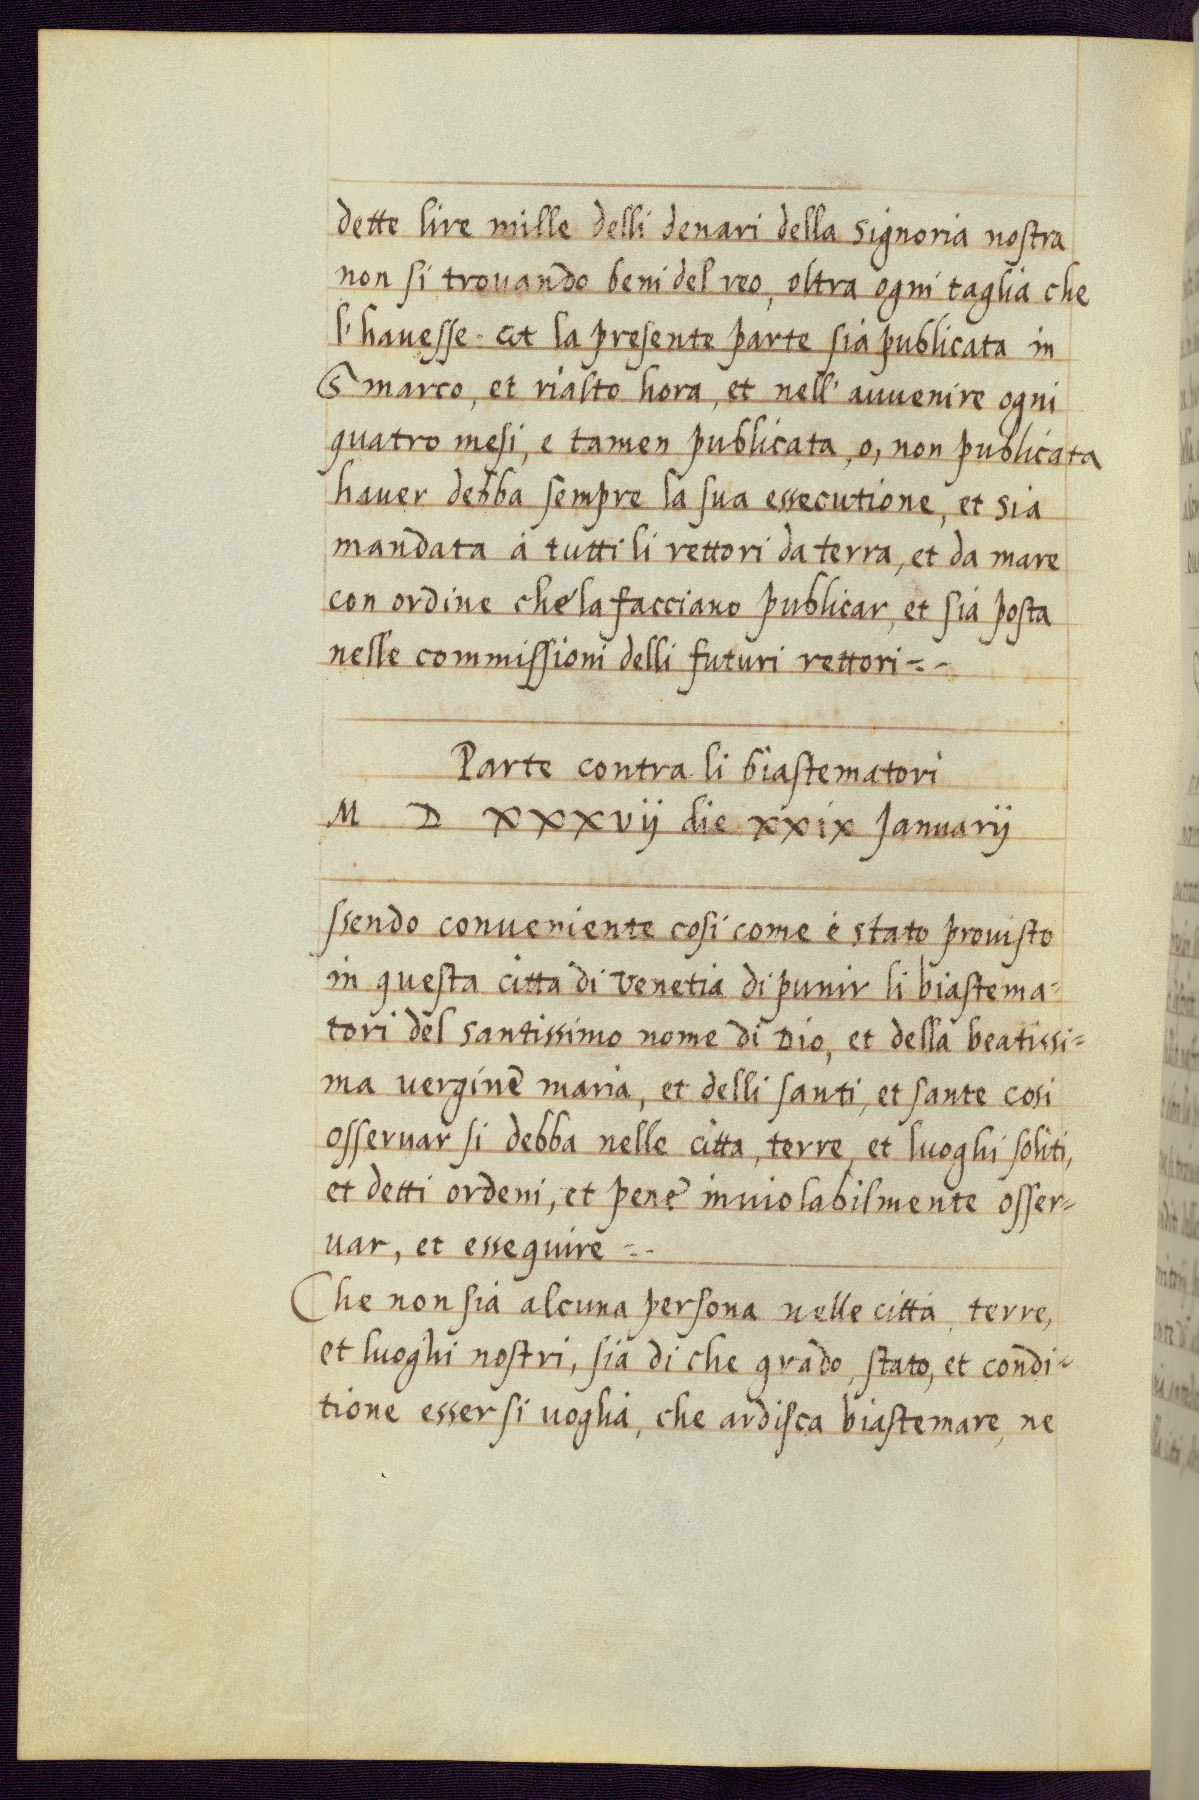 dette lire mille delli denari della signoria nostra
non si trouando beni del reo, oltra ogni taglia che
l'hauesse et la presente parte sia publicata in
S. marco, et rialto hora, et nell' auuenire ogni
quatro mesi, e tamen publicata, o, non publicata
hauer debba sempre la sua essecutione, et sia
mandata à tutti li rettori da terra, et da mare
con ordine che la facciano publicar, et sia posta
nelle commissioni delli futuri rettori=-
Parte contra li biastematori
M D xxxvij die xxix Januarij
ssendo conueniente cosi come è stato prouisto
in questa città di Venetia di punir li biastema-
tori del santissimo nome di Dio, et della beatissi=
ma uergine maria, et delli santi, et sante cosi
osseruar si debba nelle citta, terre, et luoghi soliti,
et detti ordeni, et pene inuiolabilmente osser=
uar, et essequire =-
Che non sia alcuna persona nelle città, terre,
et luoghi nostri, sia di che grado, stato, et condi-
tione esser si uoglia, che ardisca biastemare, ne